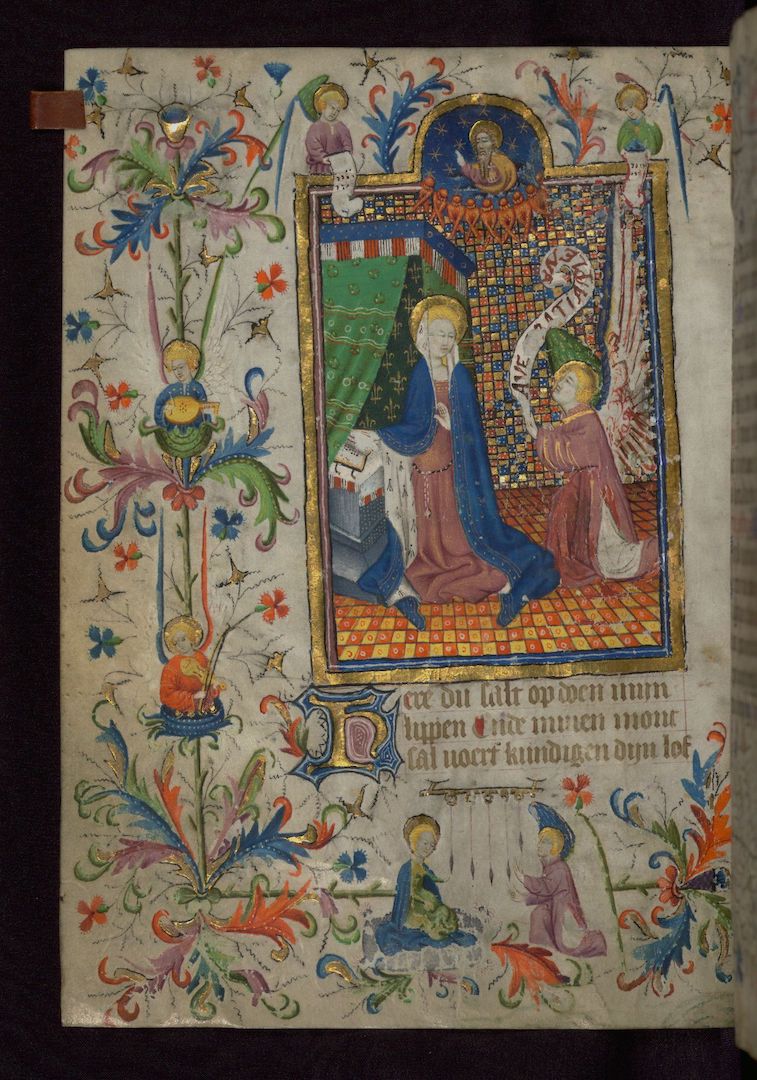 AVE GRATIA PLENA
Here du salt op doen miin
lippen Ende minen mont
sal voert kundigen dijn lof